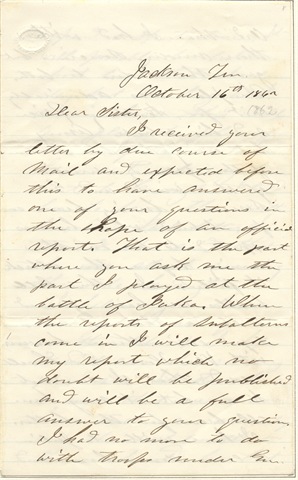 Jackson Ten
October 16th 1862
1862
Dear Sister,
I received your
letter by due course of
Mail and expected before
this to have answered
one of your questions in
the shape of an official
report. That is the part
where you ask me the
part I played at the
battle of Iuka. When
the reports of subalterns
come in I will make
my report which no
doubt will be published
and will be a full
answer to your question.
I had no more to do
with troops under Gn.